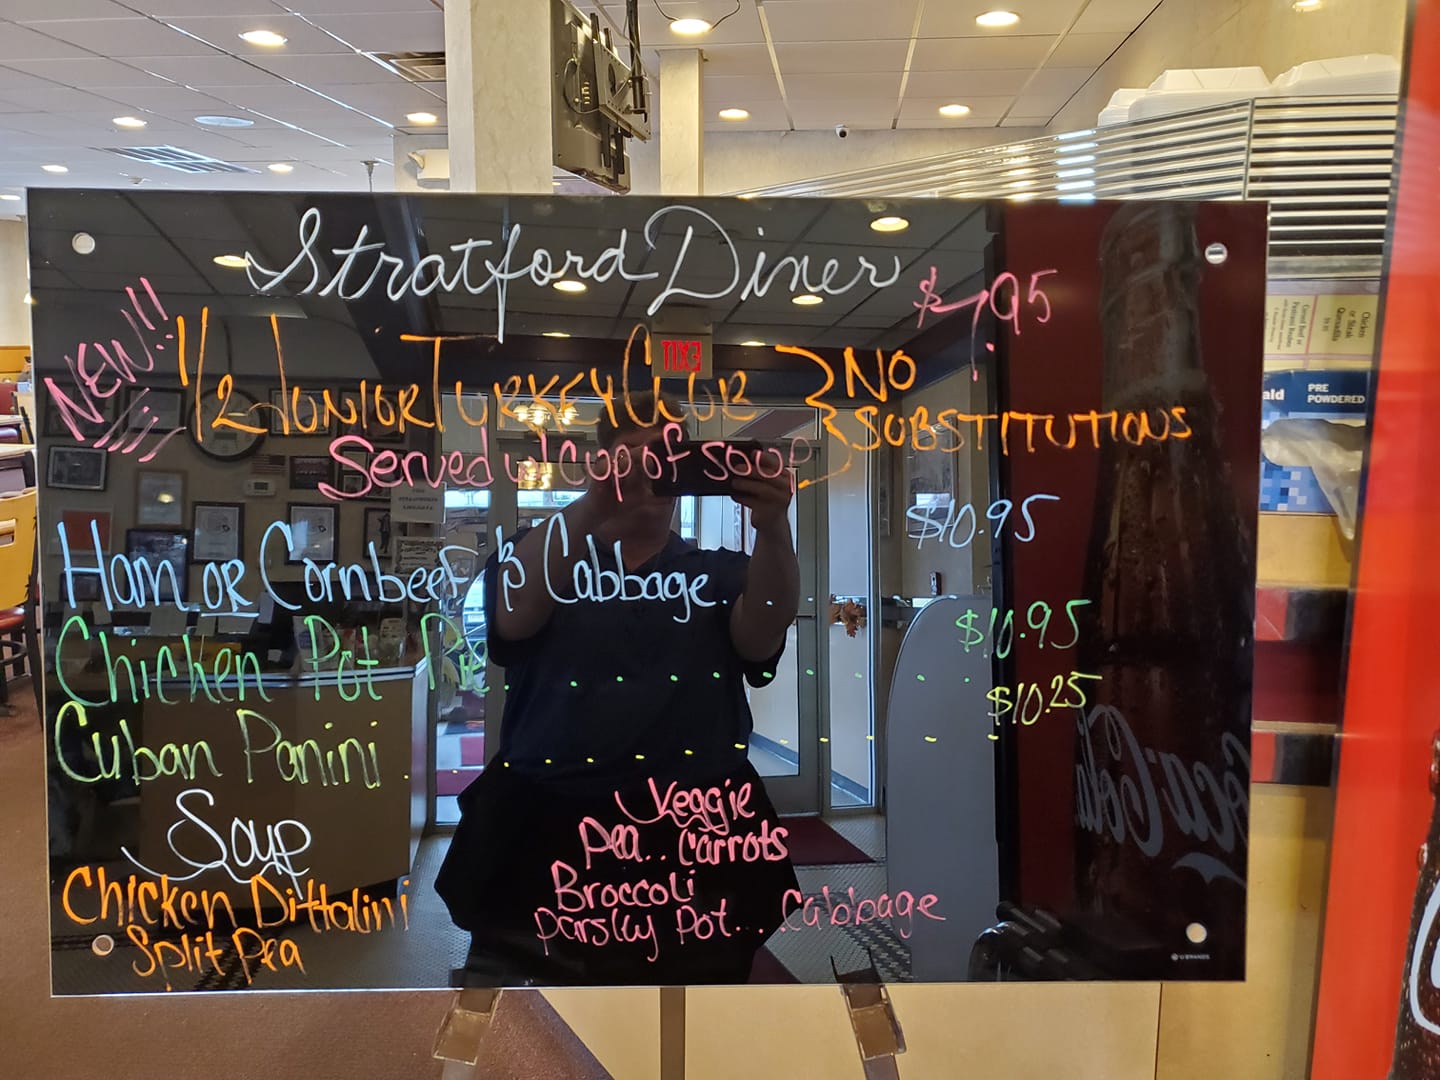 Stratford Diner
NEW!! $7.95
1/2 JUNIOR TURKEY CLUB } NO SUBSTITUTIONS
Served w/ cup of soup
$10.95
Ham OR Cornbeef & Cabbage. . .
$10.95
Chicken Pot Pie. . . . . . . . . . .
$10.25
Cuban Panini . . . . . . . . . .
Soup
Chicken Dittalini
Split Pea
Veggie
Pea.. Carrots
Broccoli
Parsley Pot... Cabbage
U BRANDS
EXIT
Coca-Cola
Chicken
or Steak
Quesadilla
ald
PRE
POWDERED